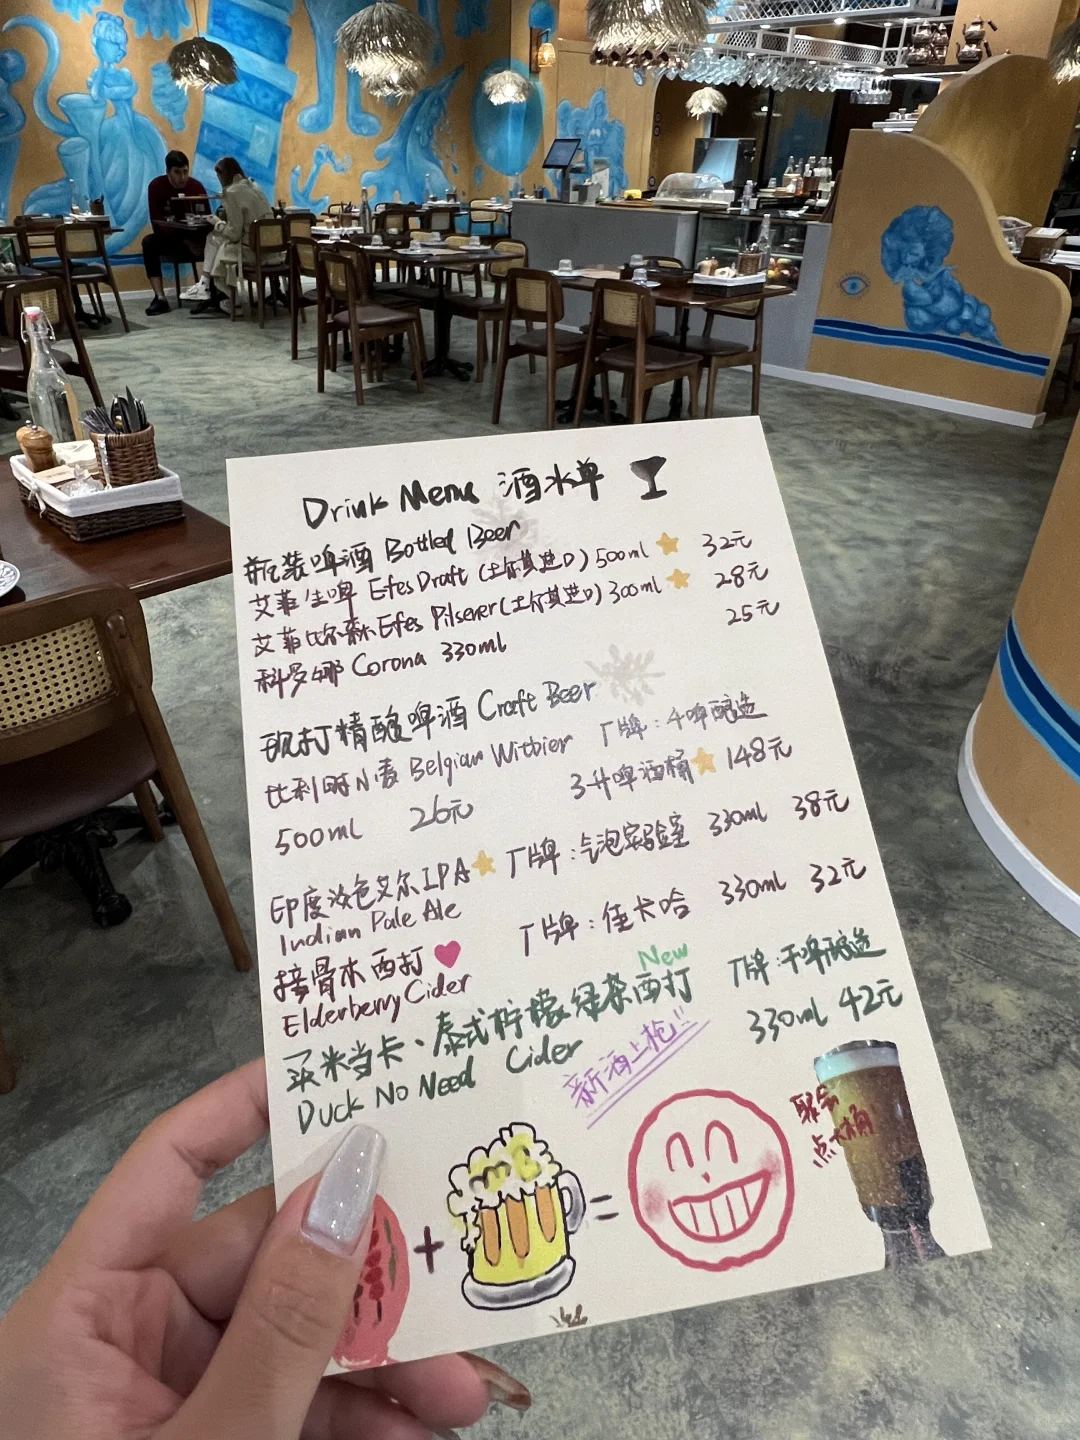 Drink Menu 酒水单
瓶装啤酒 Bottled Beer
艾菲生啤 Efes Draft (土尔其进口) 500ml 32元
艾菲比尔森 Efes Pilsener (土尔其进口) 300ml 28元
科罗娜 Corona 330ml 25元
现打精酿啤酒 Craft Beer
比利时小麦 Belgian Witbier 厂牌:干啤酿造
500ml 26元 3升啤酒桶 148元
印度淡色艾尔 IPA 厂牌:气泡实验室 330ml 38元
Indian Pale Ale
接骨木西打 厂牌:佳卡哈 330ml 32元
Elderberry Cider
New
买米当卡、泰式柠檬绿茶西打 厂牌:干啤酿造
Duck No Need Cider 330ml 42元
新酒上枪!!
聚会
点大桶
+ =